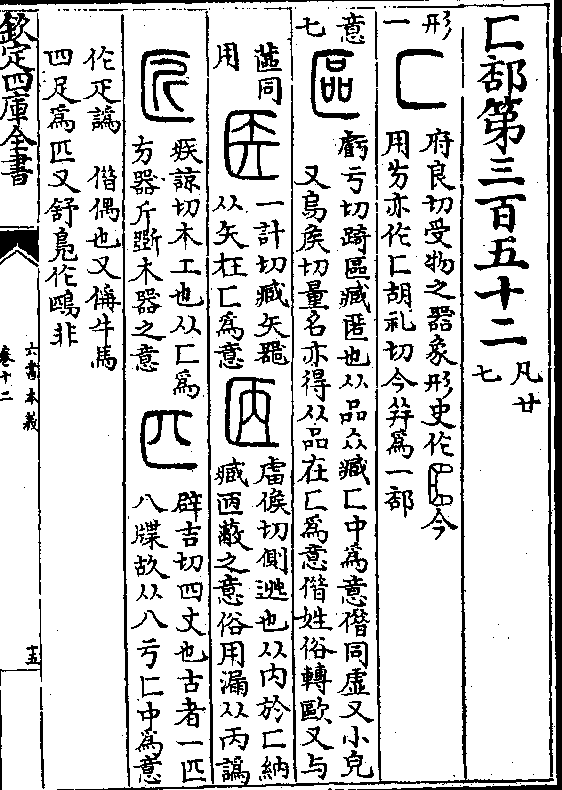 匚部第三百五十二
凡廿
七
形
一
匚
府良切受物之器象形史作今
用方亦作匚胡礼切今并為一部
意
七
區
虧亏切踦區臧匿也从品众臧匚中為意借同虚又小皃
又烏矦切量名亦得从品在匚為意借姓俗轉歐又与
蓲同
用
医
一計切臧矢器
从矢在匚為意
㔷
盧候切側逃也从内於匚納
臧匧蔽之意俗用漏从丙譌
匠
疾諒切木工也从匚為
方器斤斲木器之意
匹
辟吉切四丈也古者一匹
八牒故从八亏匚中為意
作疋譌 借偶也又偁牛馬
四足為匹又舒鳧作鴄非
欽定四庫全書
六書本義
卷十二
十五